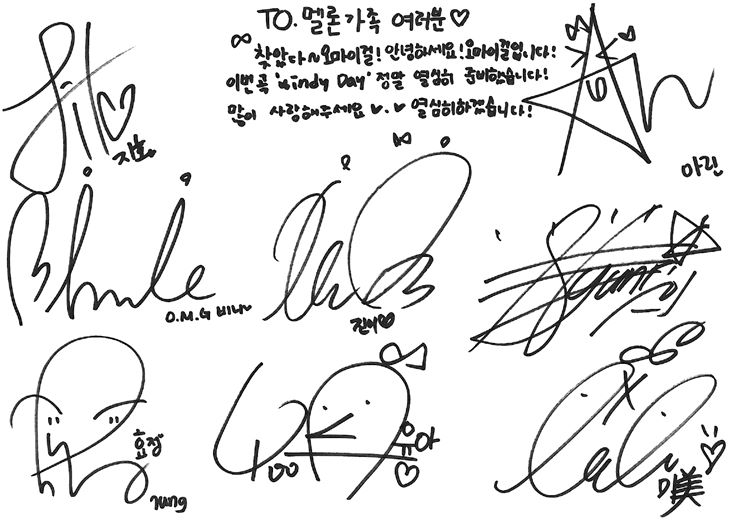 TO. 멜론가족 여러분♡
찾았다~오마이걸! 안녕하세요! 오마이걸입니다!
이번곡 'Windy Day' 정말 열심히 준비했습니다!
많이 사랑해주세요 ♥.♥ 열심히하겠습니다!
지호
아린
O.M.G 비니~
진이♥
승희
효정
Jung
YOO
유아
미美